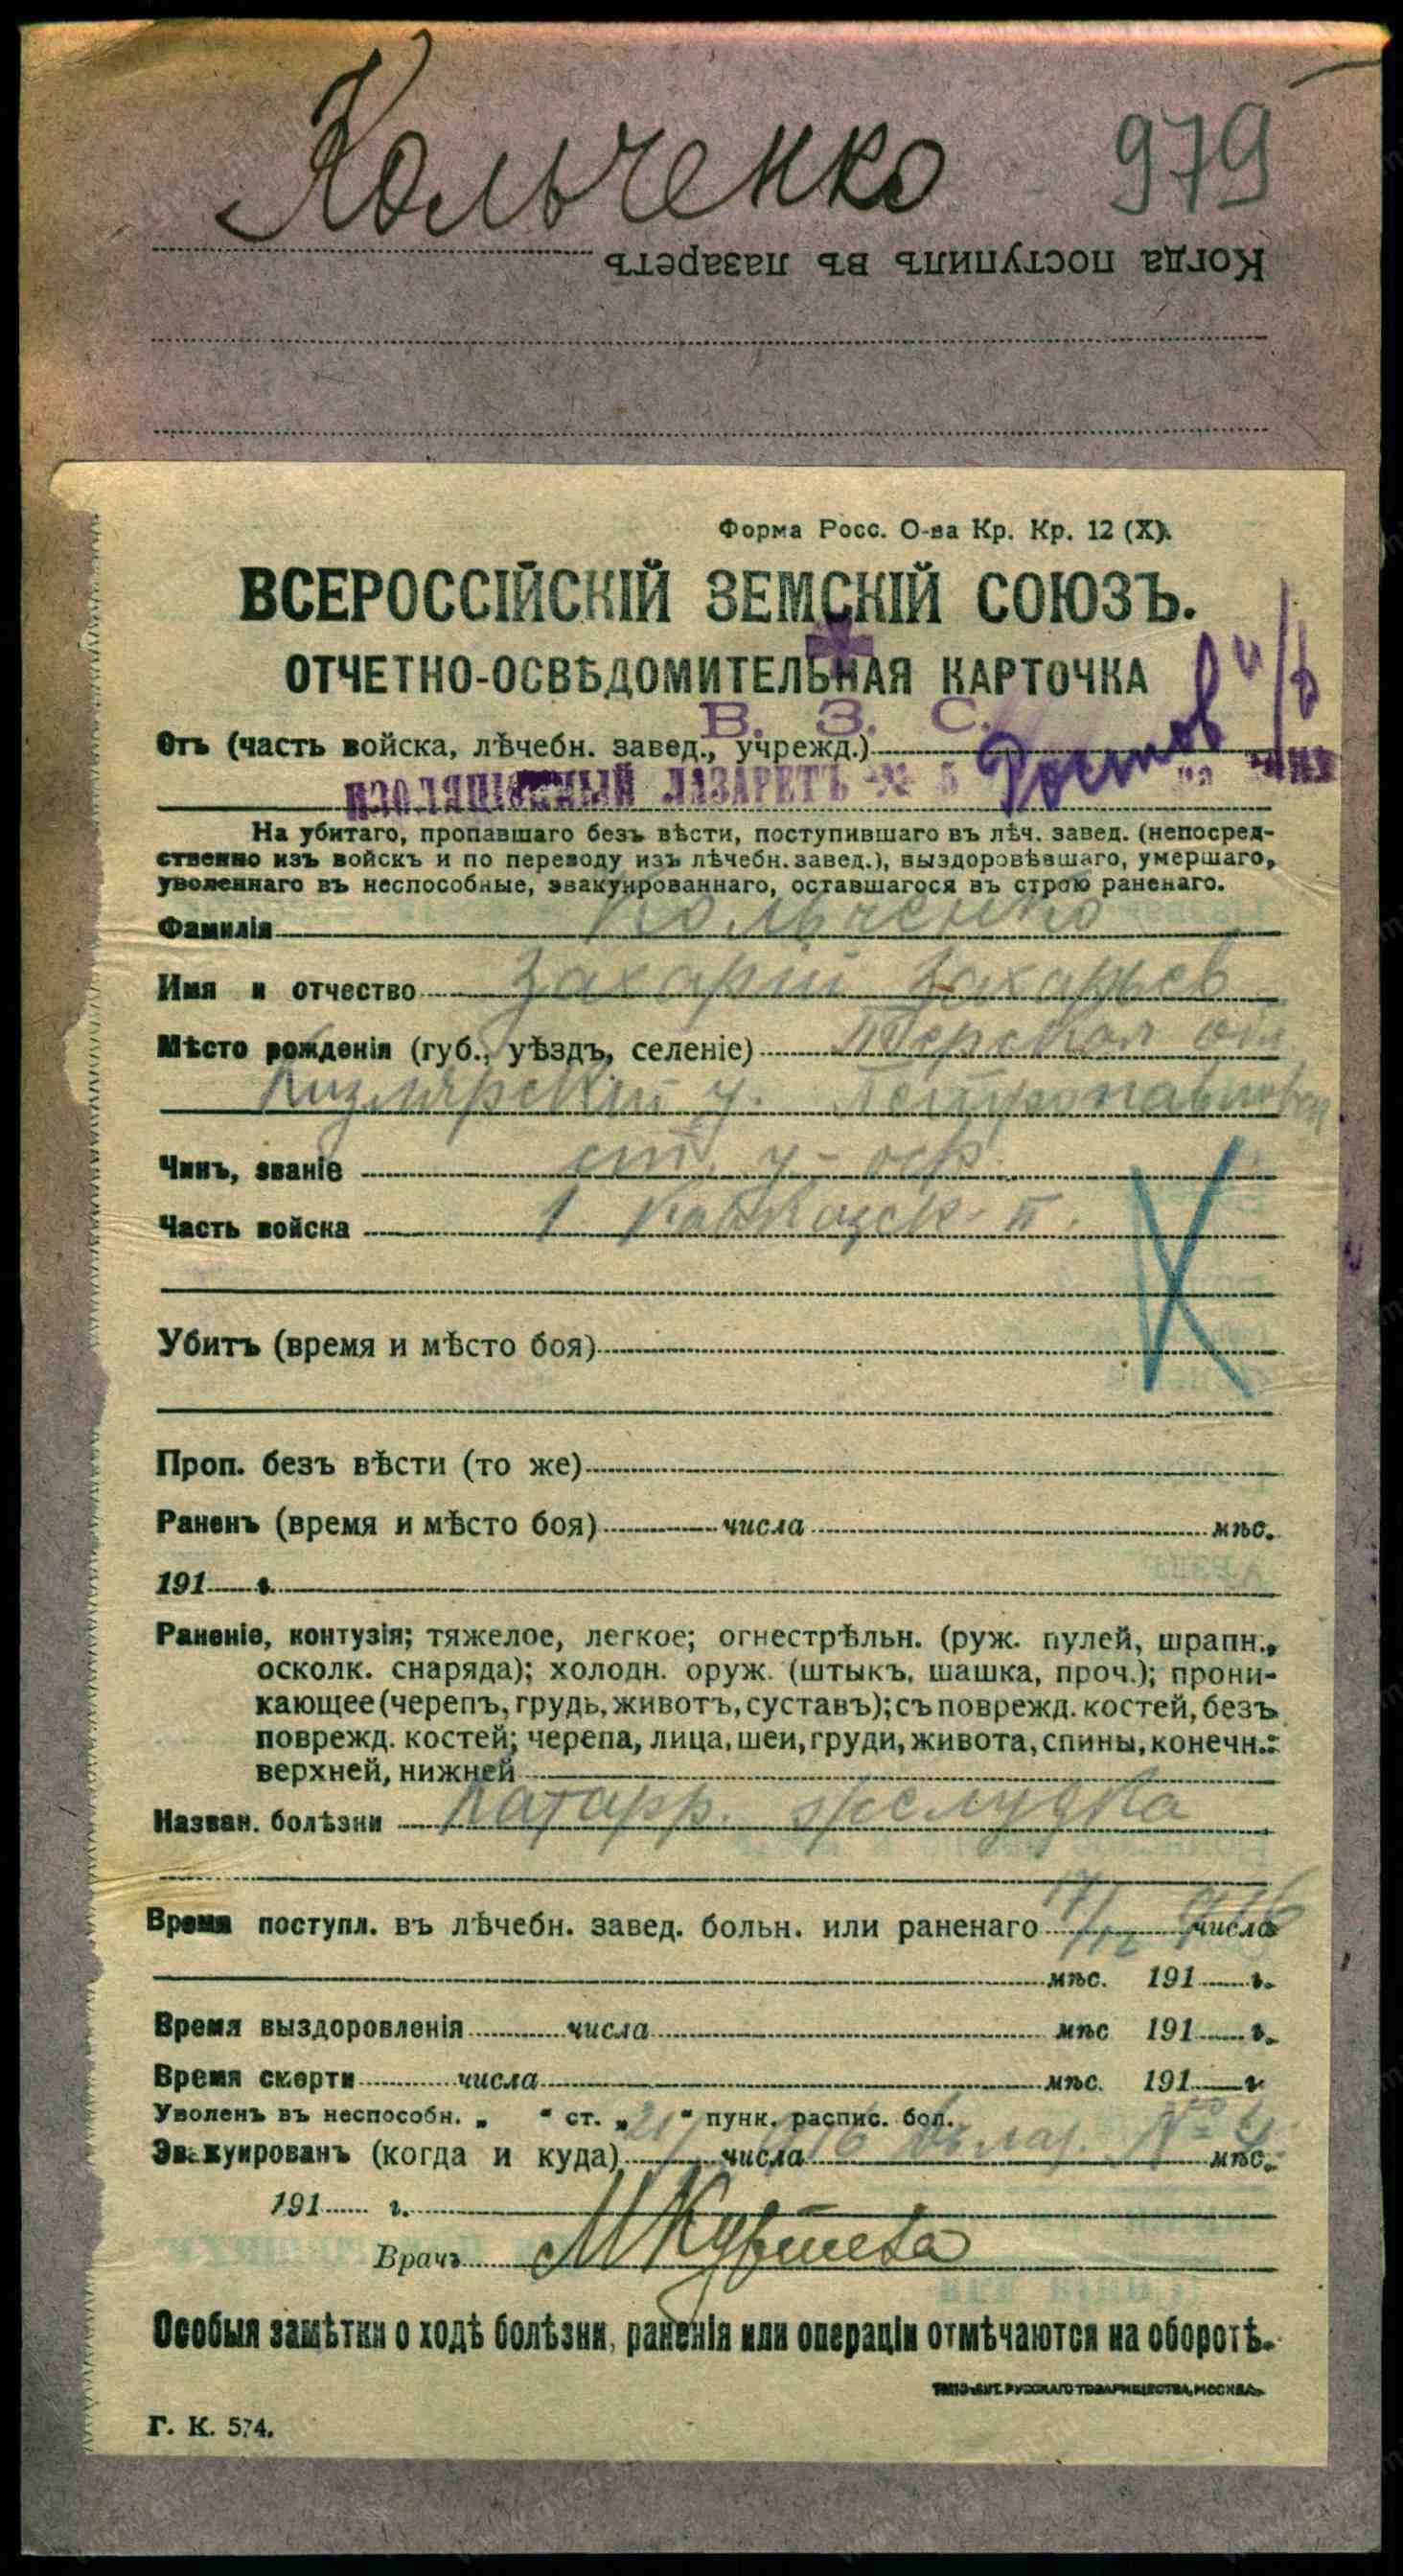 Кольченко 979
Когда поступилъ въ лазаретъ
Форма Росс. О-ва Кр. Кр. 12 (X).
ВСЕРОССІЙСКІЙ ЗЕМСКІЙ СОЮЗЪ.
ОТЧЕТНО-ОСВѢДОМИТЕЛЬНАЯ КАРТОЧКА
В. З. С.
Отъ (часть войска, лѣчебн. завед., учрежд.) Ростов н/Д
ИЗОЛЯЦІОННЫЙ ЛАЗАРЕТЪ № 5
На убитаго, пропавшаго безъ вѣсти, поступившаго въ лѣч. завед. (непосред-
ственно изъ войскъ и по переводу изъ лѣчебн. завед.), выздоровѣвшаго, умершаго,
уволеннаго въ неспособные, эвакуированнаго, оставшагося въ строю раненаго.
Фамилія Кольченко
Имя и отчество Захарій Захарьев
Мѣсто рожденія (губ., уѣздъ, селеніе) Терская обл
Кизлярский у. Петропавловск
Чинъ, званіе ст. у-оф.
Часть войска 1 Кавказск. п.
К
Убитъ (время и мѣсто боя)
Проп. безъ вѣсти (то же)
Раненъ (время и мѣсто боя) числа мѣс.
191 г.
Раненіе, контузія; тяжелое, легкое; огнестрѣльн. (руж. пулей, шрапн.,
осколк. снаряда); холодн. оруж. (штыкъ, шашка, проч.); прони-
кающее (черепъ, грудь, животъ, суставъ); съ поврежд. костей, безъ
поврежд. костей; черепа, лица, шеи, груди, живота, спины, конечн.:
верхней, нижней
Назван. болѣзни Катарр. желудка
Время поступл. въ лѣчебн. завед. больн. или раненаго 17/12 916 числа
мѣс. 191 г.
Время выздоровленія числа мѣс 191 г.
Время смерти числа мѣс. 191 г.
Уволенъ въ неспособн. „ “ ст. „ “ пунк. распис. бол.
Эвакуированъ (когда и куда) 21/ 916 числа въ лаз. № 4 мѣс.
191 г.
Врачъ
Особыя замѣтки о ходѣ болѣзни, раненія или операціи отмѣчаются на оборотѣ.
ТИПО-ЛИТ. РУССКАГО ТОВАРИЩЕСТВА, МОСКВА.
Г. К. 574.